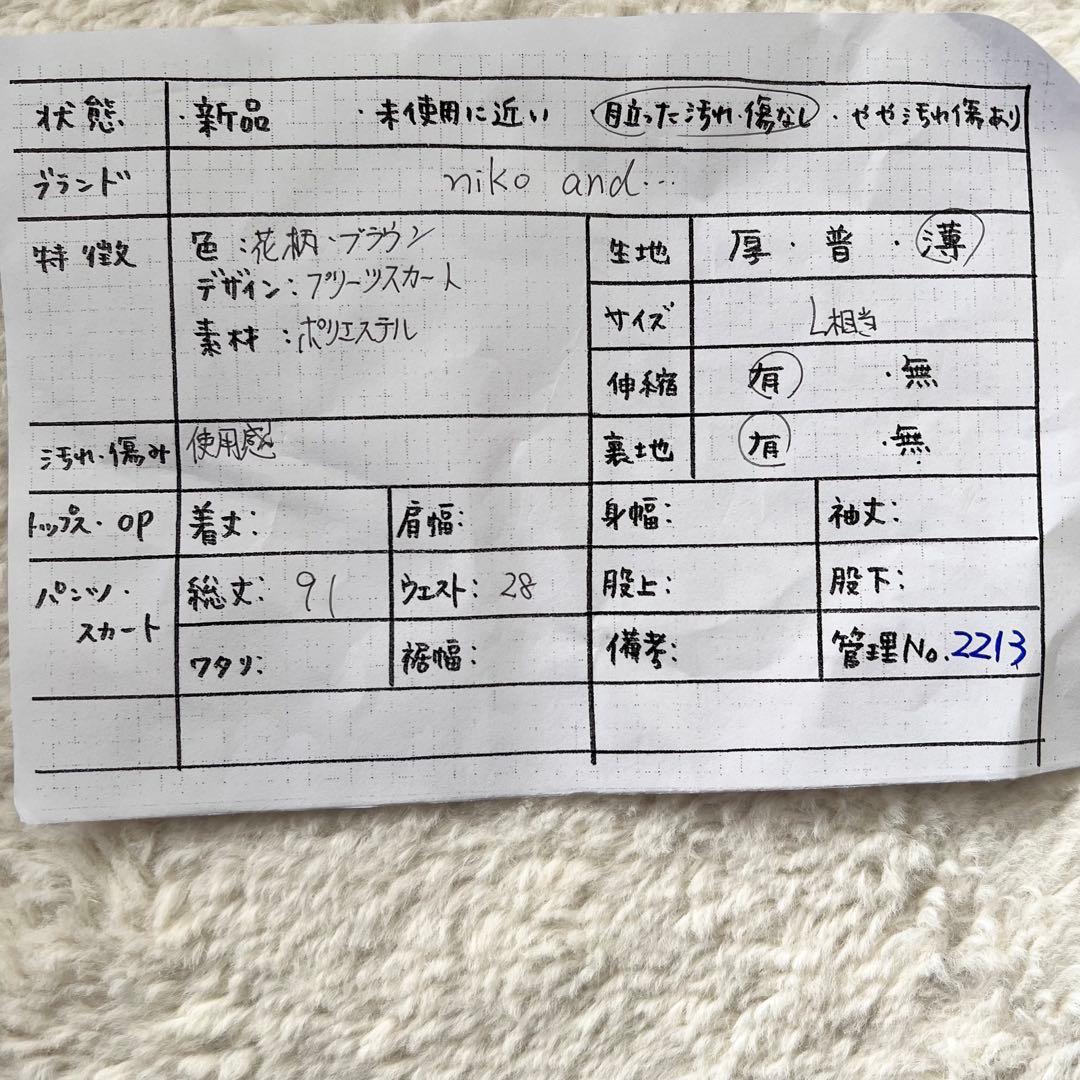 状態 ・新品 ・未使用に近い 目立った汚れ・傷なし ・やや汚れ傷あり
ブランド niko and...
特徴 色:花柄・ブラウン
デザイン:プリーツスカート
素材:ポリエステル
生地 厚・普・薄
サイズ L相当
伸縮 有 ・無
汚れ・傷み 使用感
裏地 有 ・無
トップス・OP 着丈: 肩幅: 身幅: 袖丈:
パンツ・スカート 総丈: 91 ウエスト: 28 股上: 股下:
ワタリ: 裾幅: 備考: 管理No.2213